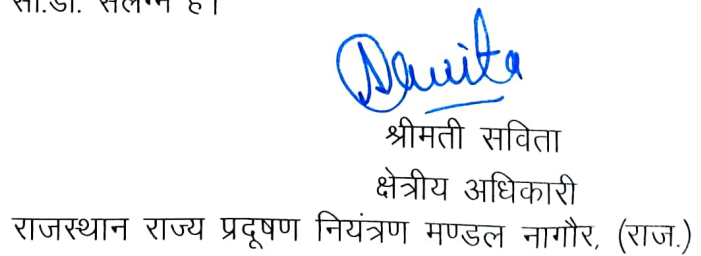 सी.डी. संलग्न है।
Savita
श्रीमती सविता
क्षेत्रीय अधिकारी
राजस्थान राज्य प्रदूषण नियंत्रण मण्डल नागौर, (राज.)